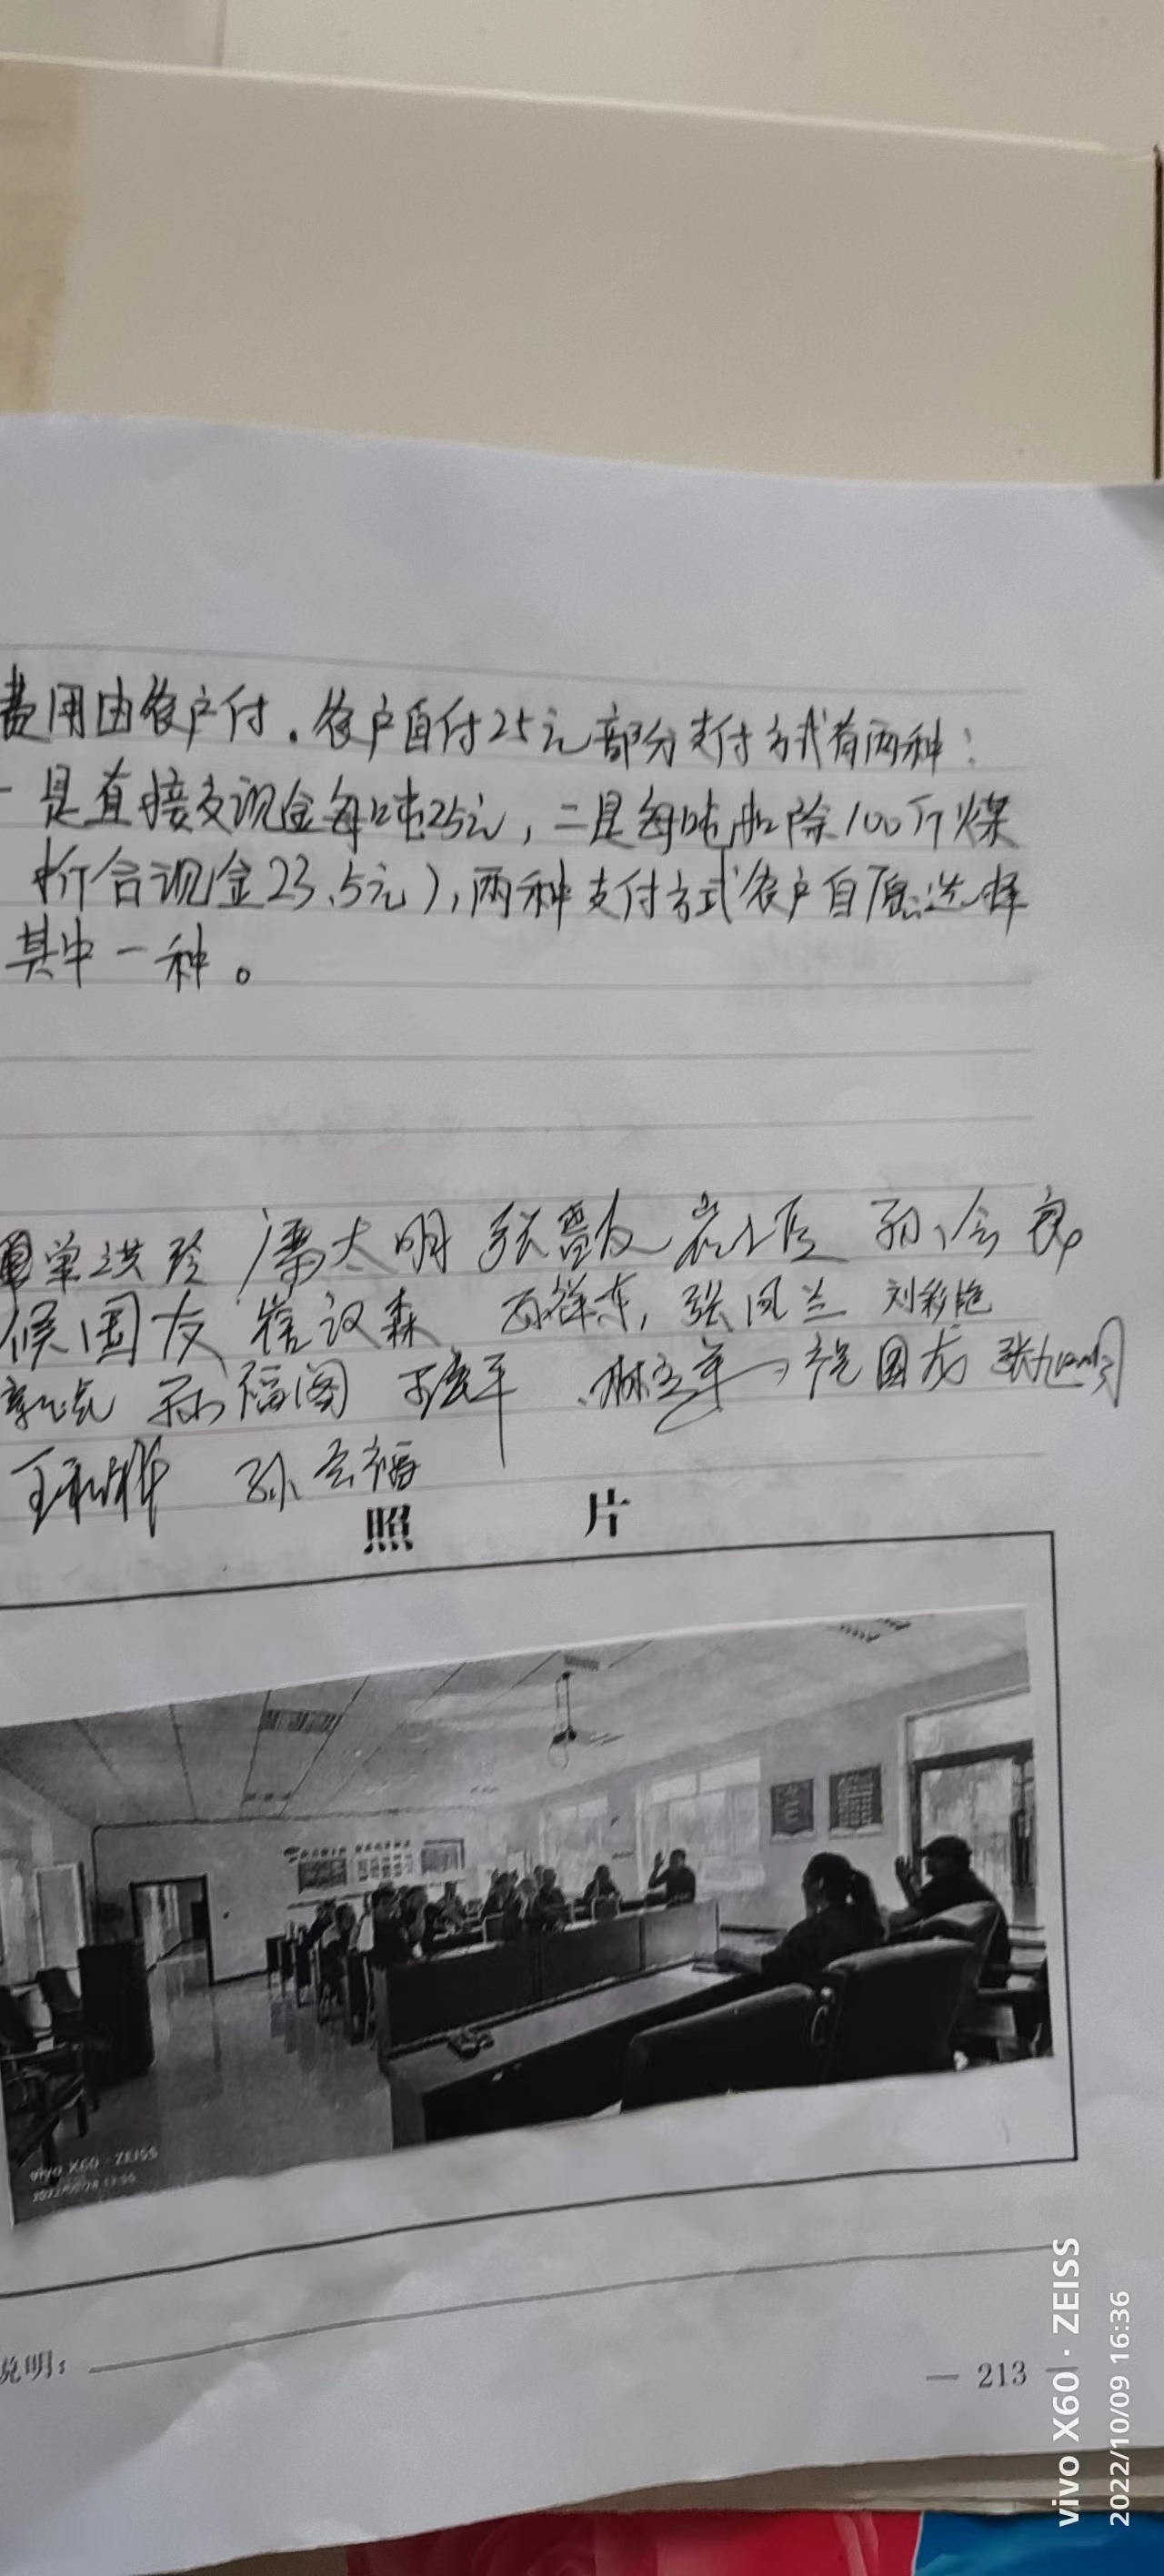 费用由农户付.农户自付25元部分支付方式有两种:
一是直接交现金每吨25元,二是每吨扣除100斤煤
折合现金23.5元),两种支付方式农户自愿选择
其中一种。
单洪珍 潘太明 孙会良
候国友 崔议森 张凤兰 刘彩艳
孙福阁 祝国友
孙云福
照 片
vivo X60 · ZEISS
说明:
— 213 —
vivo X60 · ZEISS
2022/10/09 16:36